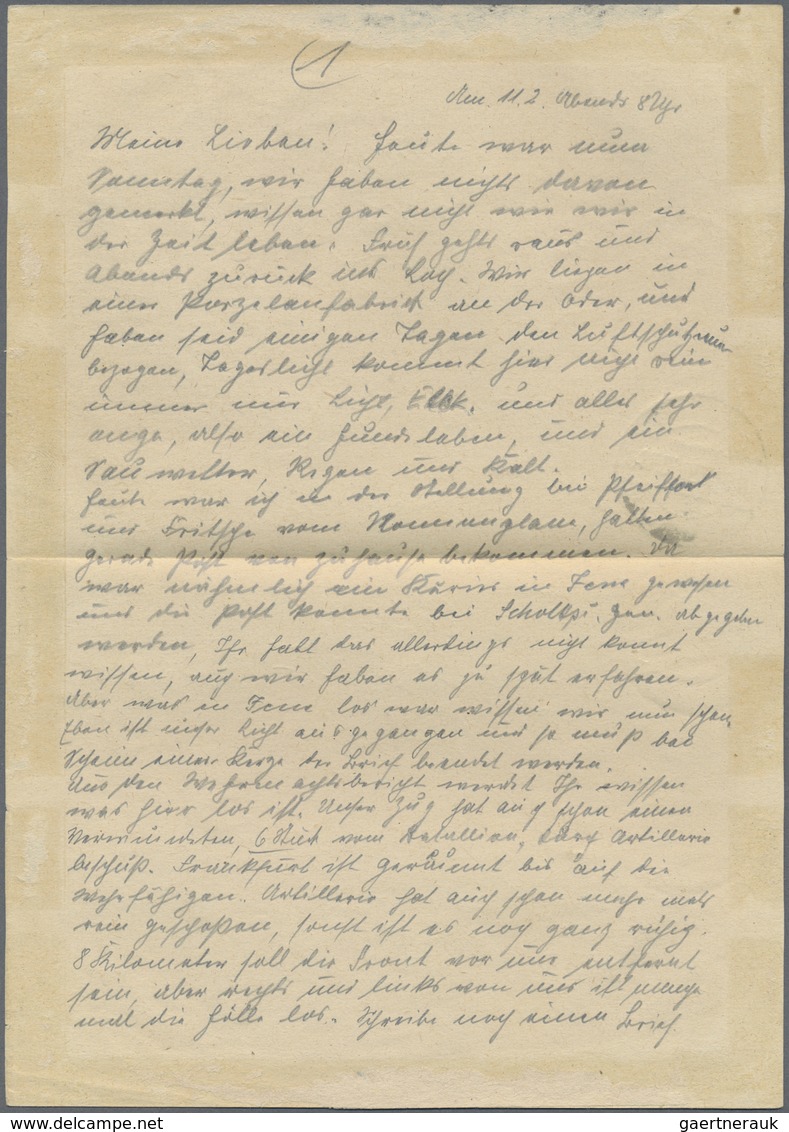 1
Am. 11.2. Abends 8 Uhr
Meine Lieben! Heute war nun
Sonntag, wir haben nichts davon
gemerkt, wissen gar nicht wie wir in
der Zeit leben. Früh gehts raus und
Abends zurück ins Loch. Wir liegen in
einer Porzelanfabrick an der Oder, und
haben seid einigen Tagen den Luftschutzraum
bezogen, Tageslicht kommt hier nicht rein
immer nur Licht, und alles sehr
enge, also ein Hundeleben, und ein
Sauwetter, Regen und Kalt.
Heute war ich in der Stellung bei
und Fritsche vom hatten
gerade Post von zuhause bekommen. Da
war nähmlich ein Kurier in Jena gewesen
und die Post konnte bei abgegeben
werden, Ihr habt das allerdings nicht konnt
wissen, auch wir haben es zu spät erfahren.
Aber was in Jena los war wissen wir nun schon.
Eben ist unser Licht ausgegangen und so muß bei
Schein einer Kerze der Brief beendet werden.
Aus den Wehrmachtsbericht werdet Ihr wissen
was hier los ist. Unser Zug hat auch schon einen
Verwundeten, 6 Stück vom Batallion, durch Artillerie
beschuß. Frankfurt ist geräumt bis auf die
Wehrfähigen. Artillerie hat auch schon mehr mals
rein geschoßen, sonst ist es noch ganz ruhig.
8 Kilometer soll die Front vor uns entfernt
sein, aber rechts und links von uns ist manch
mal die Hölle los. Schreibe noch einen Brief.
gaertnerauk